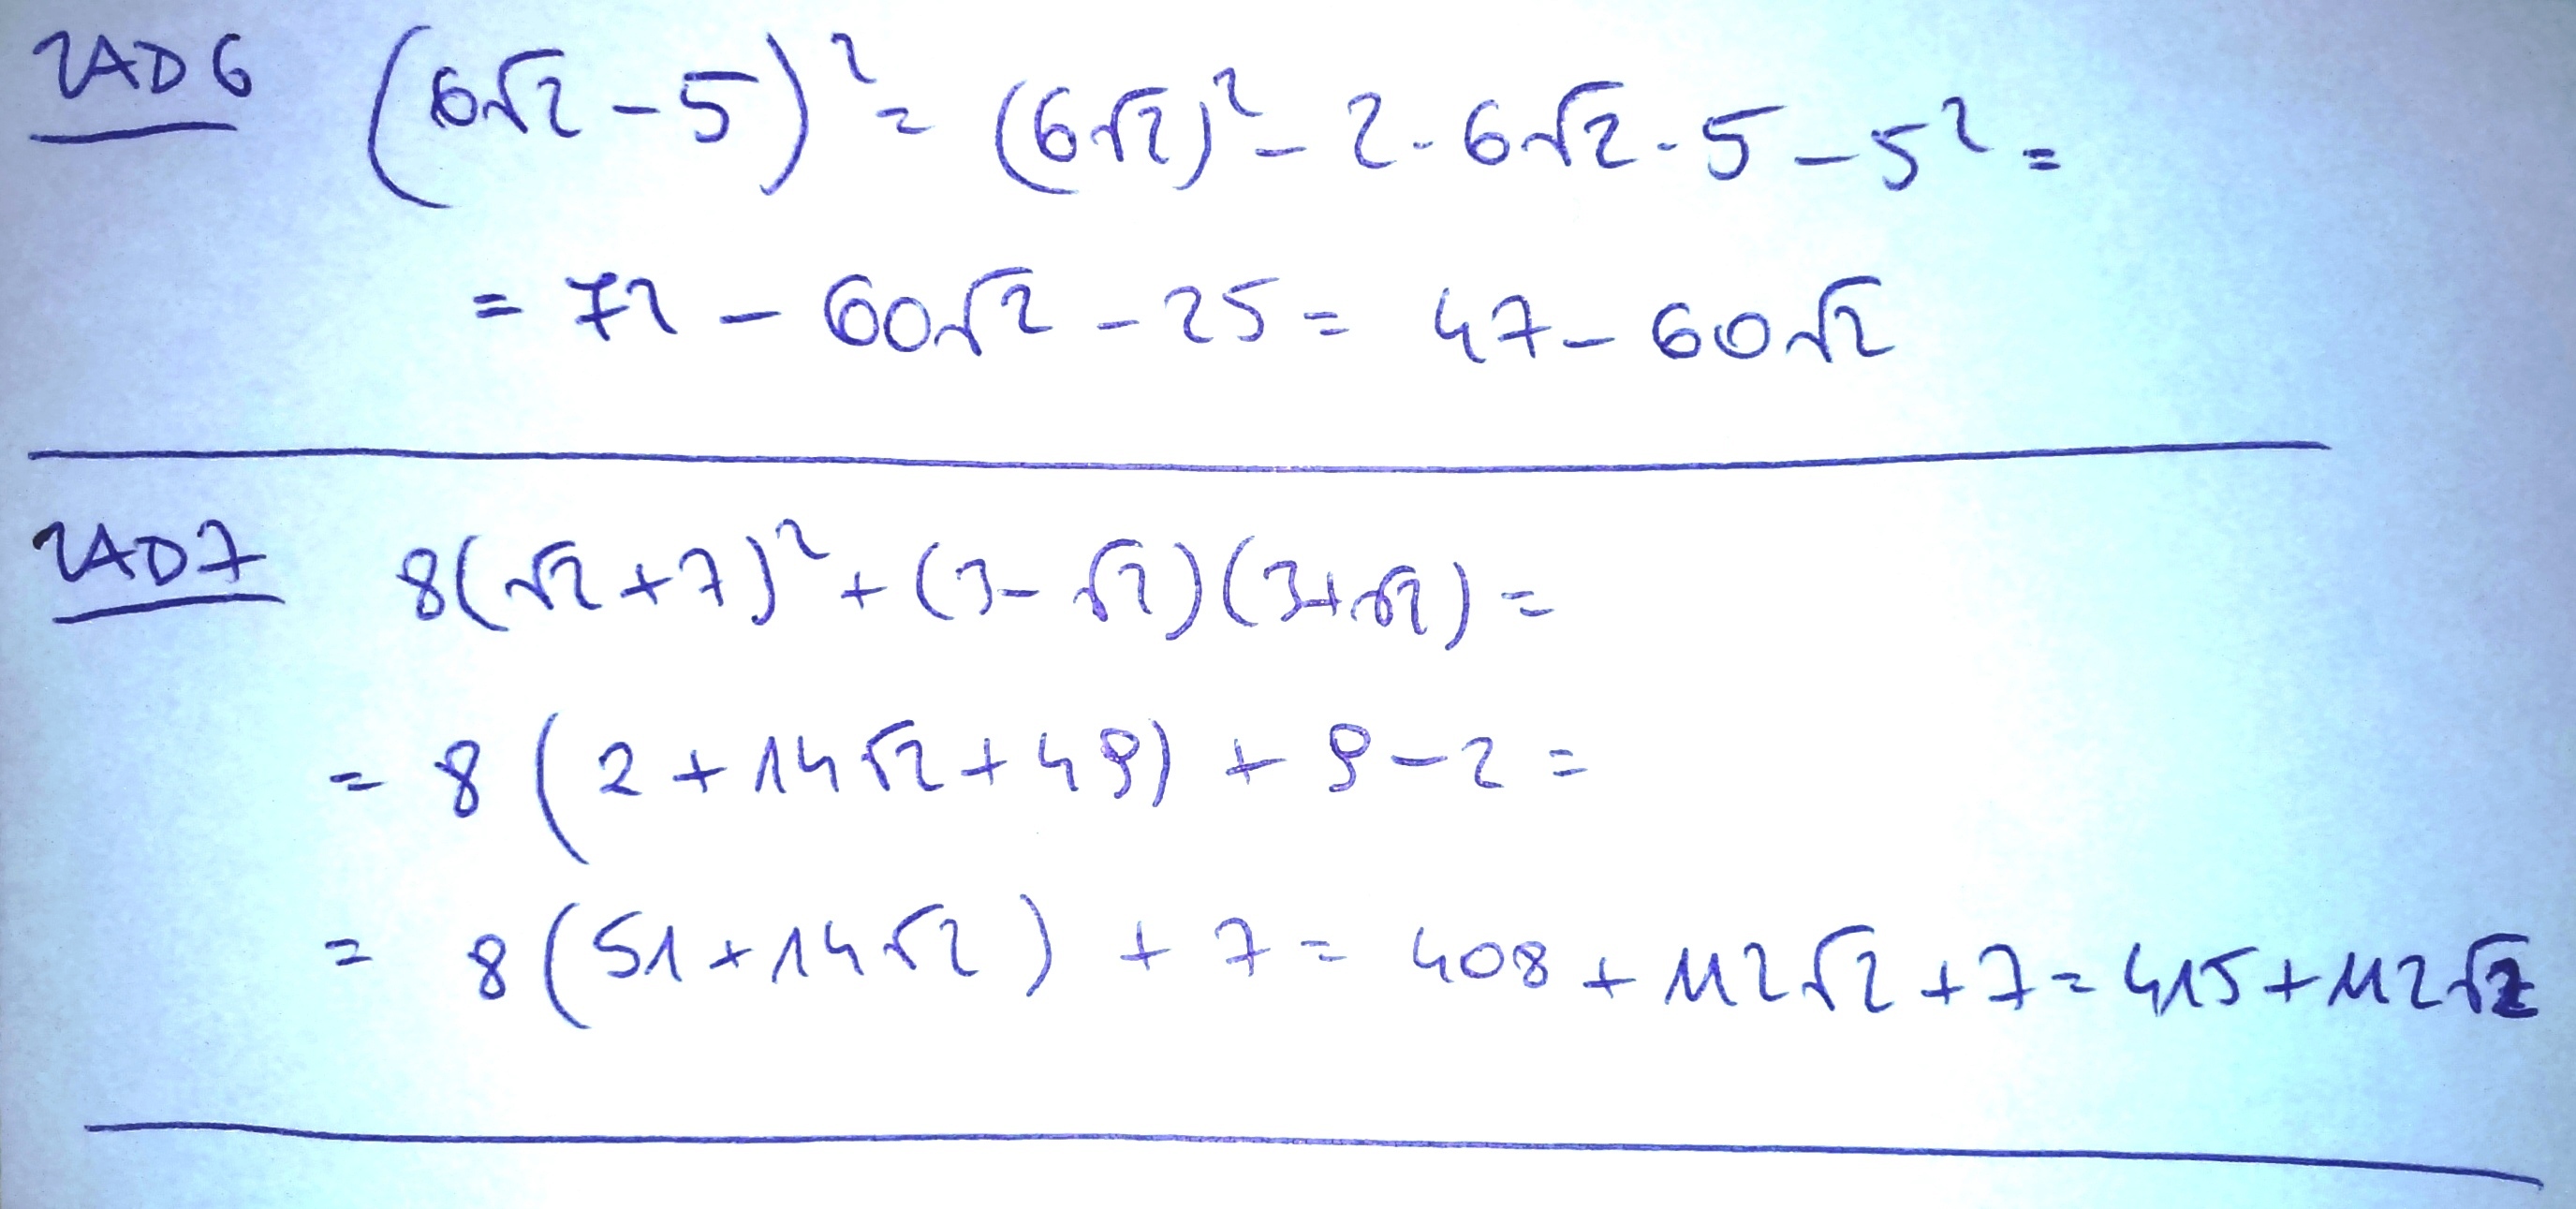 ZAD 6 (6√2 - 5)² = (6√2)² - 2 · 6√2 · 5 - 5² =
= 72 - 60√2 - 25 = 47 - 60√2
ZAD 7 8(√2 + 7)² + (3 - √2)(3 + √2) =
= 8(2 + 14√2 + 49) + 9 - 2 =
= 8(51 + 14√2) + 7 = 408 + 112√2 + 7 = 415 + 112√2